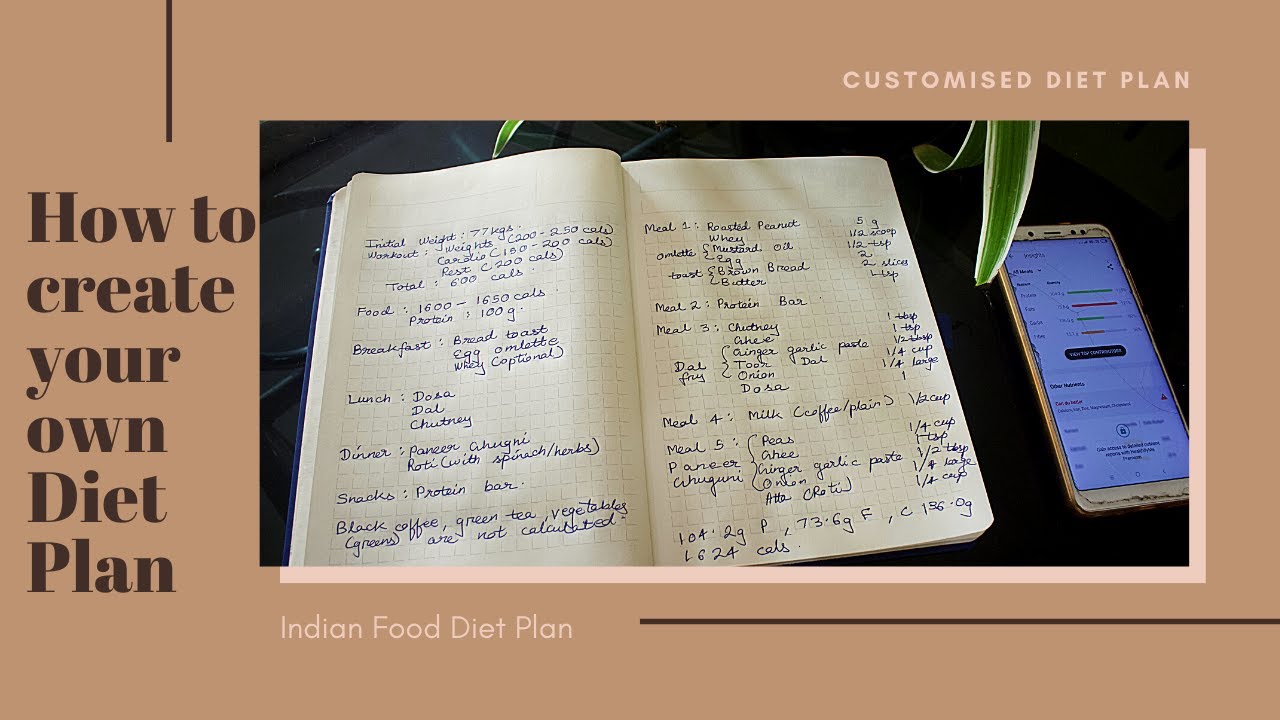 CUSTOMISED DIET PLAN
How to
create
your
own
Diet
Plan
Initial Weight : 77kgs.
Workout : Weights (200-250 cals)
Cardio (150-200 cals)
Rest (200 cals)
Total : 600 cals.
Food : 1600 - 1650 cals.
Protein : 100g.
Breakfast : Bread toast
Egg omlette
Whey (optional)
Lunch : Dosa
Dal
Chutney
Dinner : Paneer Ghugni
Roti (with spinach/herbs)
Snacks : Protein bar.
Black coffee, green tea, vegetables
(greens) are not calculated.
Meal 1 : Roasted Peanut 5 g
Whey 1/2 scoop
omlette { Mustard Oil 1/2 tsp
Egg 2
toast { Brown Bread 2 slices
Butter 1 tsp
Meal 2 : Protein Bar.
Meal 3 : Chutney 1 tbsp
Ghee 1 tsp
Dal fry { Ginger garlic paste 1/2 tbsp
Toor Dal 1/4 cup
Onion 1/4 large
Dosa 1
Meal 4 : Milk (coffee/plain) 1/2 cup
Meal 5 : { Peas 1/4 cup
Paneer Ghee 1 tsp
Ghuguni Ginger garlic paste 1/2 tbsp
Onion 1/4 large
Atta (Roti) 1/4 cup
104.2g P, 73.6g F, C 136.0g
1624 cals.
Insights
All Meals
Protein
Fats
Carbs
VIEW TOP CONTRIBUTORS
Other Nutrients
Indian Food Diet Plan